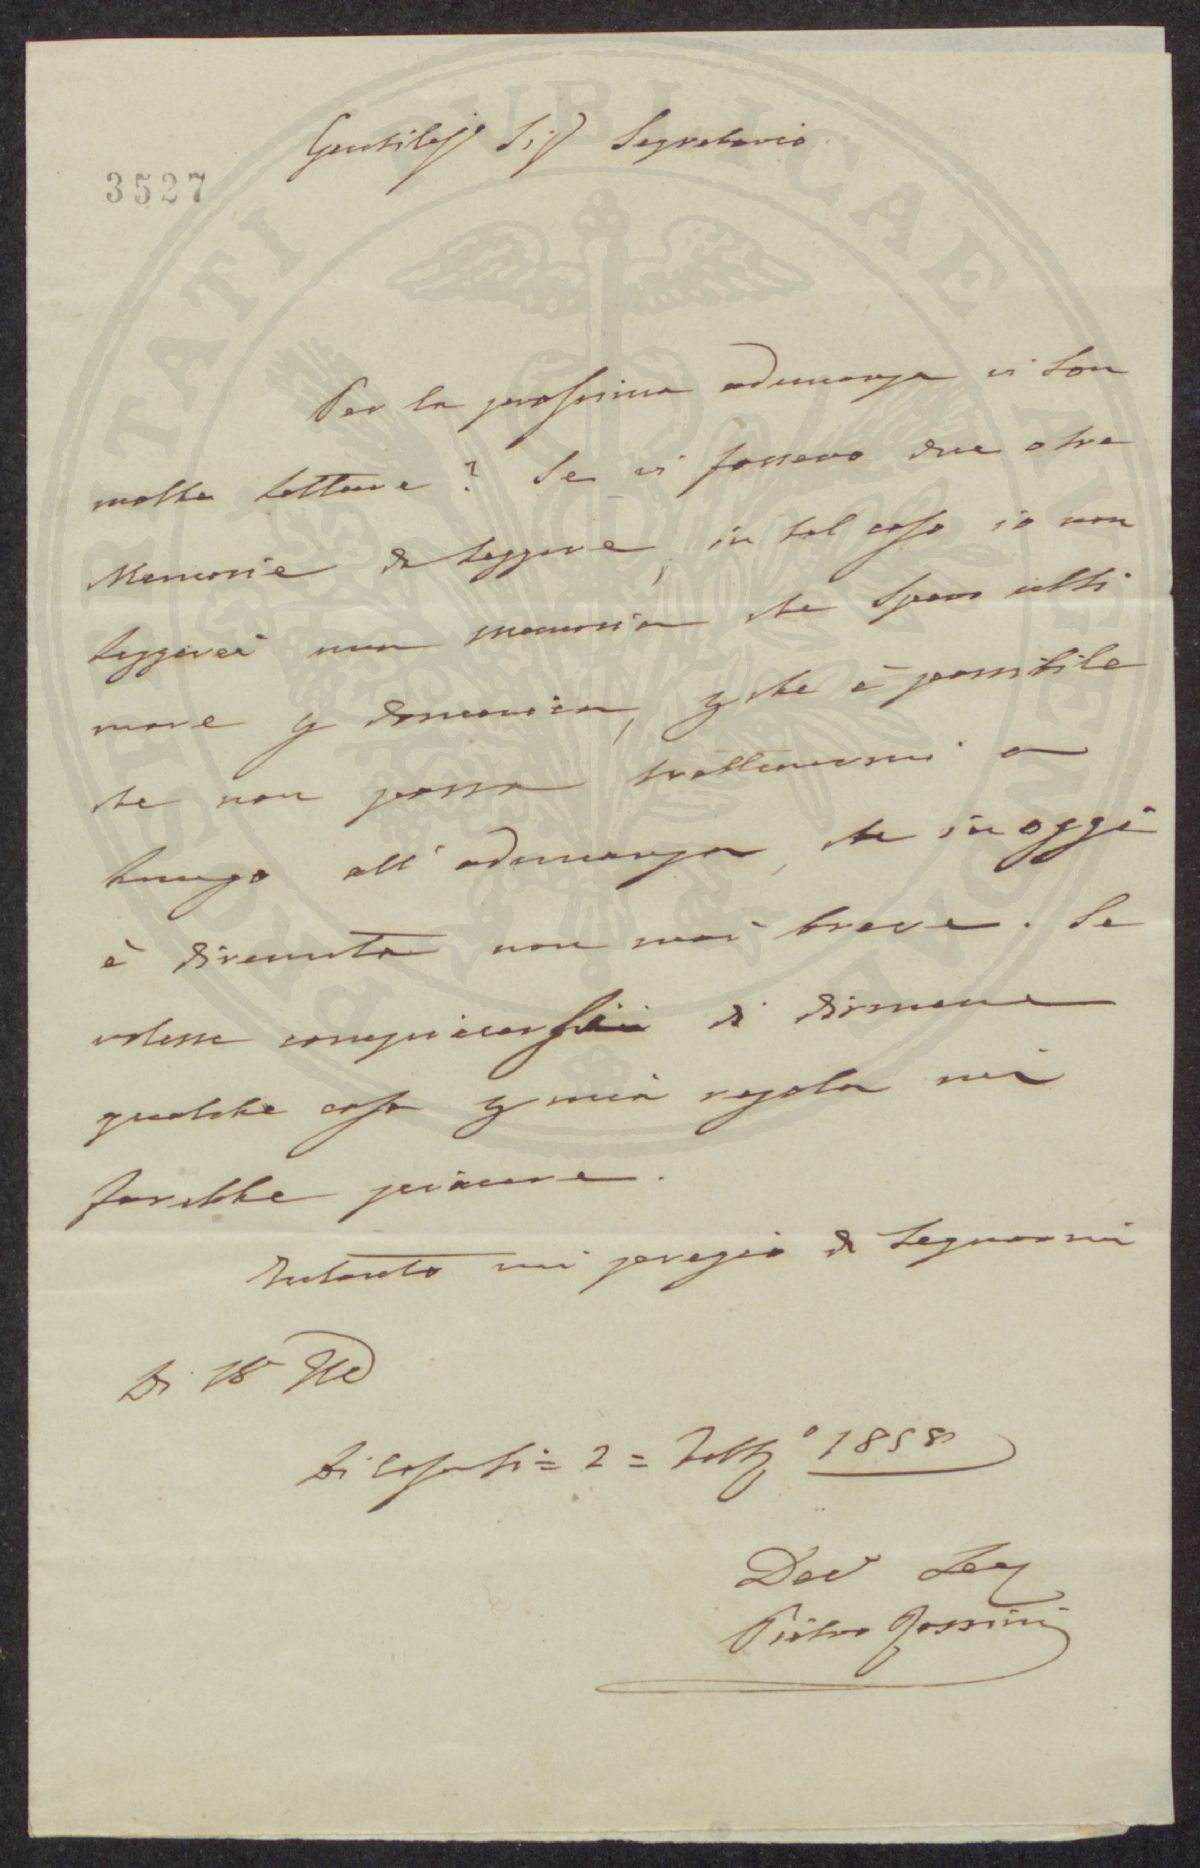 Gentiless Sigr Segretario
3527
Per la prossima adunanza vi son
molte letture? Se vi fossero due o tre
Memorie da leggere, in tal caso io non
leggerei una memoria che spero ulti
mare p domenica, p che è possibile
che non possa trattenermi a
lungo all'adunanza, che in oggi
è divenuta non mai breve. Se
volesse compiacersi di dirmene
qualche cosa p mia regola mi
farebbe piacere.
Intanto mi pregio di segnarmi
Di V S Ill
Di Casa li = 2 = 1858
Dev Ser
Pietro
PROSPERITATI PUBLICAE AUGENDAE